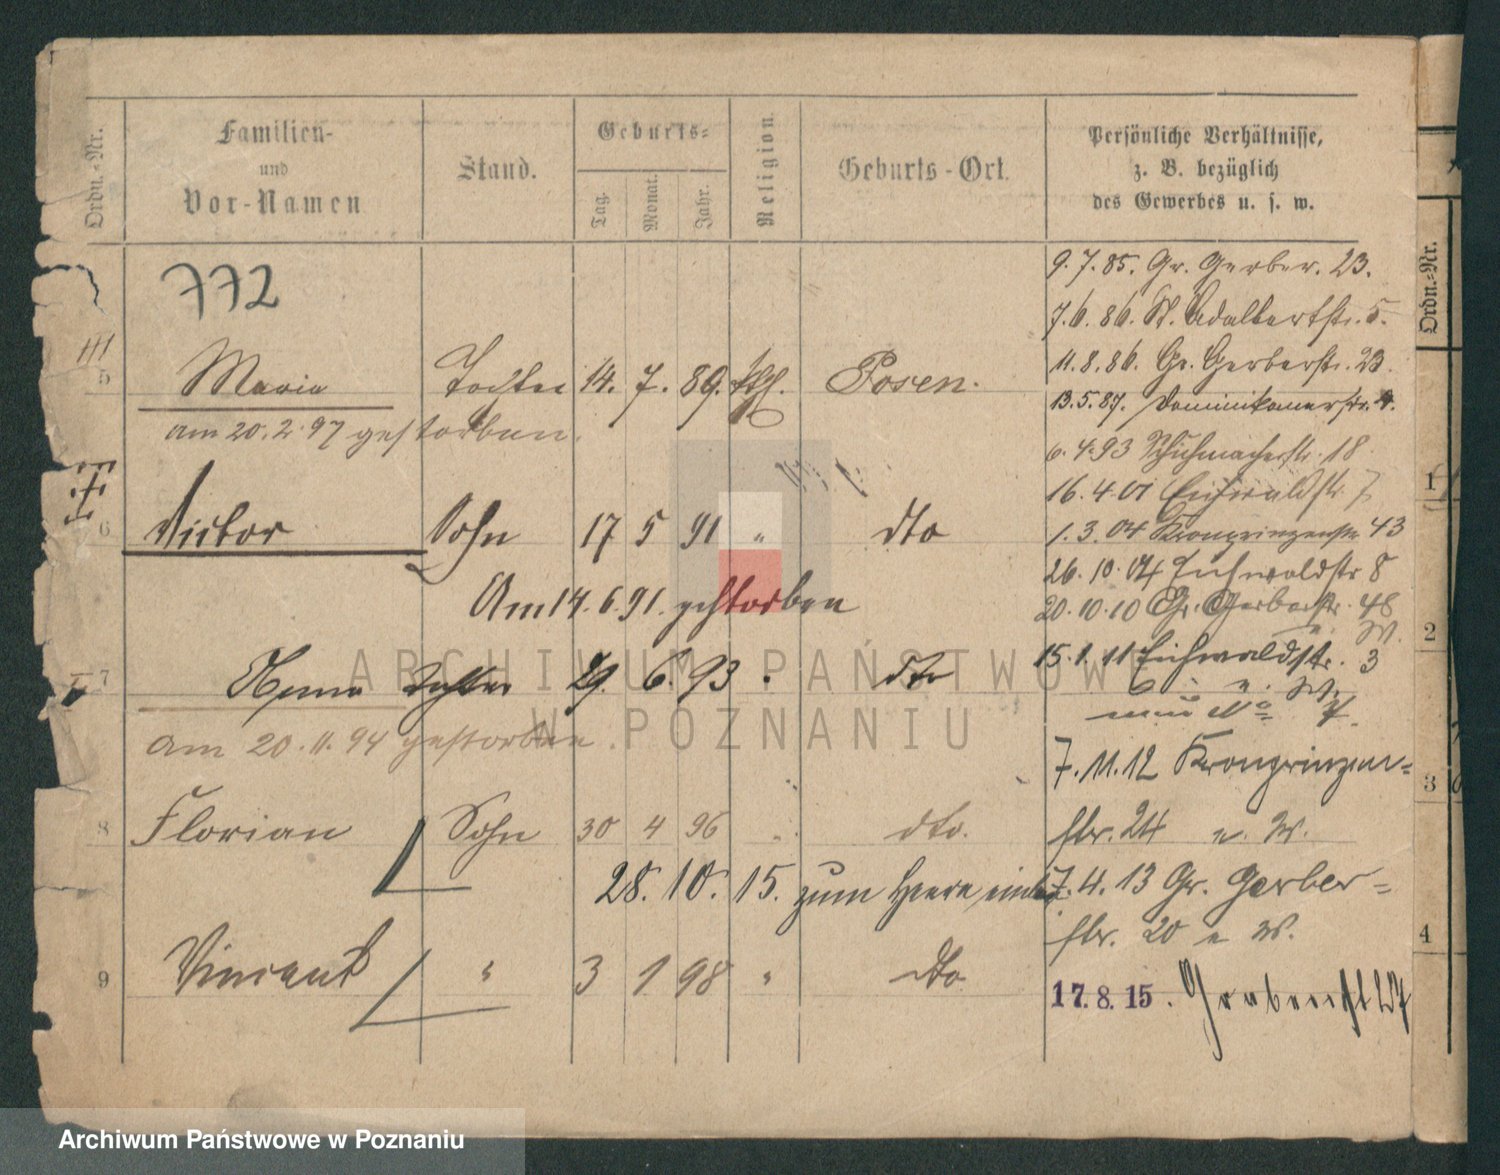 Ordn.-Nr.
Familien-
und
Vor-Namen
Stand.
Geburts-
Tag.
Monat.
Jahr.
Religion.
Geburts-Ort.
Persönliche Verhältnisse,
z. B. bezüglich
des Gewerbes u. s. w.
772
5 Maria Tochter 14. 7. 89. kath. Posen.
am 20. 2. 97 gestorben.
6 Victor Sohn 17 5 91 " dto
Am 14. 6. 91. gestorben
7 Anna Tochter 29. 6. 93 " dto
am 20. 11. 94 gestorben.
8 Florian Sohn 30 4 96 " dto.
28. 10. 15. zum Heere
9 Vincent " 3 1 98 " dto
9. 7. 85. Gr. Gerber. 23.
7. 6. 86. St. Adalbertstr. 5.
11. 8. 86. Gr. Gerberstr. 23.
13. 5. 87. Dominikanerstr. 4.
6. 4. 93 Schuhmacherstr. 18
16. 4. 01 Eichwaldstr. 7
1. 3. 04 Kronprinzenstr. 43
26. 10. 04 Eichwaldstr 8
20. 10. 10 Gr. Gerberstr. 48
u. W.
15. 1. 11 Eichwaldstr. 3
u. W.
7. 11. 12 Kronprinzen-
str. 24 u. W.
17. 4. 13 Gr. Gerber-
str. 20 u W.
17. 8. 15. Grabenst 27
Ordn.-Nr.
1
2
3
4
ARCHIWUM PAŃSTWOWE
W POZNANIU
Archiwum Państwowe w Poznaniu